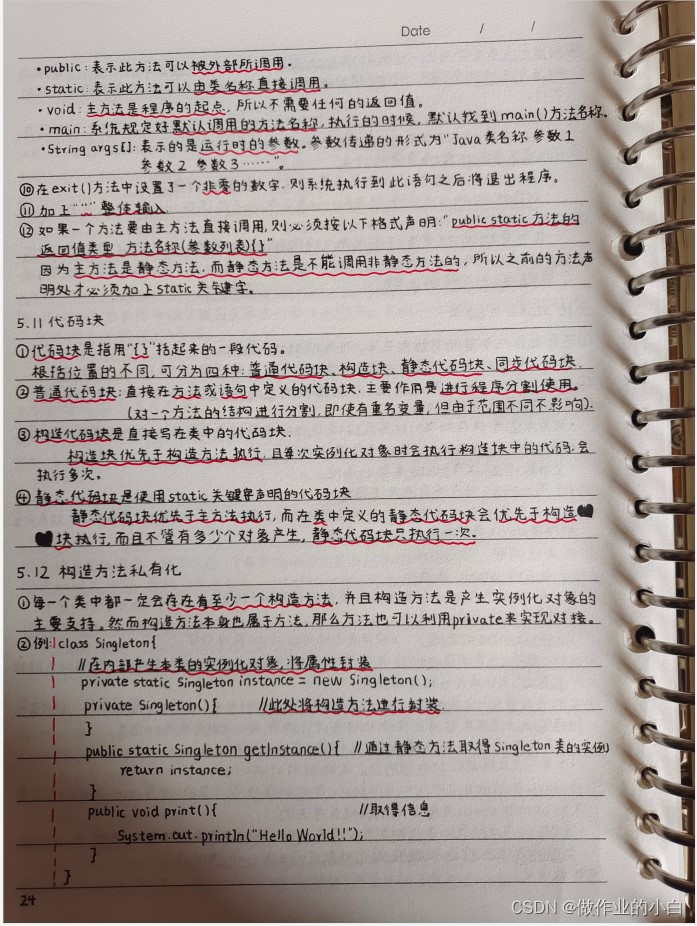 Date / /
·public:表示此方法可以被外部所调用.
·static:表示此方法可以由类名称直接调用。
·void:主方法是程序的起点,所以不需要任何的返回值。
·main:系统规定好默认调用的方法名称,执行的时候,默认找到main()方法名称.
·String args[]:表示的是运行时的参数。参数传递的形式为"Java类名称 参数1
参数2 参数3……"。
⑩在exit()方法中设置了一个非零的数字,则系统执行到此语句之后将退出程序。
⑪加上"""整体输入
⑫如果一个方法要由主方法直接调用,则必须按以下格式声明:"public static 方法的
返回值类型 方法名称(参数列表){}"
因为主方法是静态方法,而静态方法是不能调用非静态方法的,所以之前的方法声
明处才必须加上static关键字。
5.11 代码块
①代码块是指用"{}"括起来的一段代码。
根括位置的不同,可分为四种:普通代码块、构造块、静态代码块、同步代码块.
②普通代码块:直接在方法或语句中定义的代码块.主要作用是进行程序分割使用。
(对一个方法的结构进行分割,即使有重名变量,但由于范围不同不影响).
③构造代码块是直接写在类中的代码块.
构造块优先于构造方法执行,且每次实例化对象时会执行构造块中的代码,会
执行多次。
④静态代码块是使用static关键字声明的代码块
静态代码块优先于主方法执行,而在类中定义的静态代码块会优先于构造
块执行,而且不管有多少个对象产生,静态代码块只执行一次.
5.12 构造方法私有化
①每一个类中都一定会存在有至少一个构造方法,并且构造方法是产生实例化对象的
主要支持。然而构造方法本身也属于方法,那么方法也可以利用private来实现对接。
②例:class Singleton{
//在内部产生本类的实例化对象,将属性封装
private static Singleton instance = new Singleton();
private Singleton(){ //此处将构造方法进行封装.
}
public static Singleton getInstance(){ //通过静态方法取得Singleton类的实例
return instance;
}
public void print(){ //取得信息
System.out.println("Hello World!!");
}
}
24
CSDN @做作业的小白